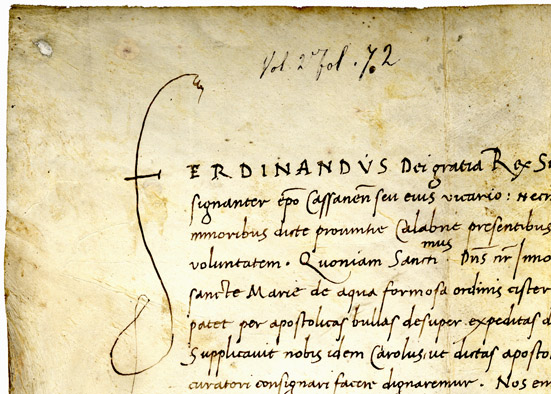 Vol. 2º fol. 72
FERDINANDVS Dei gratia Rex Si
signanter epo Cassanen seu eius vicario : necn
minoribus dicte provintie Calabrie presentibus
voluntatem . Quoniam Sancti mus . Dns nr Inno
sancte Marie de aqua formosa ordinis cister
patet per apostolicas bullas desuper expeditas d
Supplicavit nobis idem Carolus, ut dictas aposto
curatori consignari facere dignaremur . Nos em